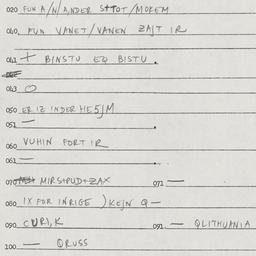 020 FUN A/N/A,NDER STOT/MOKEM
040, FUN VANET/VANEN ZAJT IR
041 + BINSTU EQ BISTU.
043 O
050 ER IZ INDER HE5JM
051 — .
060 VUHIN FORT IR
061 — .
070 MIRS+PUD+ZAX 071 —
080 IX FOR INRIGE ) KEJN Q—
090 CURI,K 091. — QLITHUANIA
100 — QRUSS